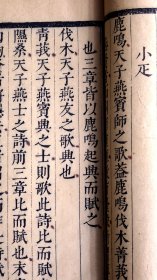 小疋
鹿鳴天子燕賓師之歌葢鹿鳴伐木菁莪
也三章皆以鹿鳴起興而賦之
伐木天子燕友之歌興也
菁莪天子燕賓興之士則歌此詩比而賦
隰桑天子燕士之詩前三章比而賦也末